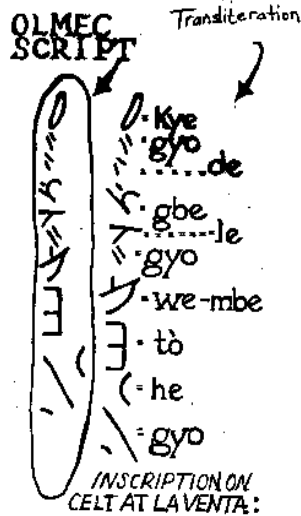 OLMEC
SCRIPT
Transliteration
Kye
gyo
......de
gbe
......le
gyo
we-mbe
tò
he
gyo
INSCRIPTION ON
CELT AT LA VENTA: